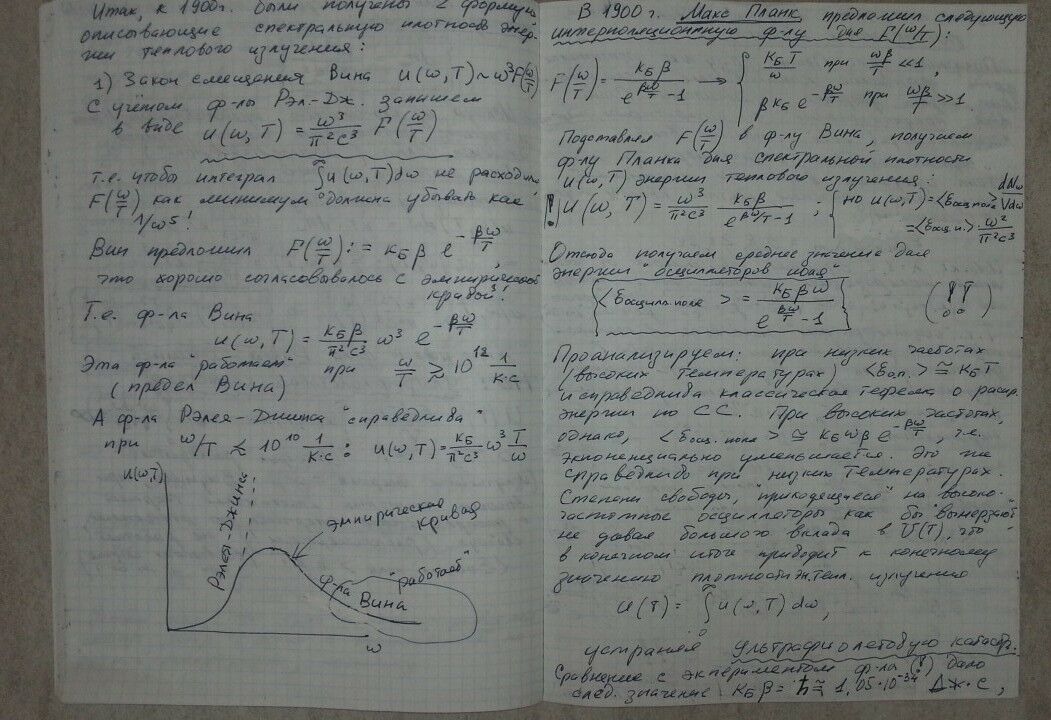 Итак, к 1900г. были получены 2 формулы,
описывающие спектральную плотность энер-
гии теплового излучения:
1) Закон смещения Вина u(ω,T)~ω³F(ω/T)
С учётом ф-лы Рэл.-Дж. запишем
в виде u(ω,T) = ω³/π²c³ F(ω/T)
т.е. чтобы интеграл ∫₀^∞ u(ω,T)dω не расходился
F(ω/T) как минимум должна убывать как
1/ω⁵!
Вин предложил F(ω/T) := кБ β e^(-βω/T),
это хорошо согласовывалось с эмпирической
кривой!
Т.е. ф-ла Вина
u(ω,T) = кБβ/π²c³ ω³ e^(-βω/T)
Эта ф-ла "работает" при ω/T ≳ 10¹² 1/К·с
(предел Вина)
А ф-ла Рэлея-Джинса "справедлива"
при ω/T ≲ 10¹⁰ 1/К·с : u(ω,T) = кБ/π²c³ ω³ T/ω
u(ω,T)
Рэлея-Джинса
эмпирическая
кривая
ф-ла Вина "работает"
ω
В 1900г. Макс Планк предложил следующую
интерполяционную ф-лу для F(ω/T):
F(ω/T) = кБ β / (e^(βω/T) - 1) → { кБ T/ω при ωβ/T ≪ 1,
β кБ e^(-βω/T) при ωβ/T ≫ 1.
Подставляя F(ω/T) в ф-лу Вина, получаем
ф-лу Планка для спектральной плотности
u(ω,T) энергии теплового излучения:
! u(ω,T) = ω³/π²c³ кБ β / (e^(βω/T) - 1) ; { но u(ω,T) = <εосц.поля> dNω/Vdω
= <εосц.п.> ω²/π²c³
Отсюда получаем среднее значение для
энергии "осцилляторов поля"
<εосцилл.поле> = кБ β ω / (e^(βω/T) - 1) (!!)
Проанализируем: при низких частотах
(высоких температурах) <εо.п.> ≅ кБT
и справедлива классическая теорема о распр.
энергии по СС. При высоких частотах,
однако, <εосц.поле> ≅ кБωβ e^(-βω/T), т.е.
экпоненциально уменьшается. Это же
справедливо при низких температурах.
Степени свободы, "приходящиеся" на высоко-
частотные осцилляторы как бы "вымерзают"
не давая большого вклада в U(T), что
в конечном итоге приводит к конечному
значению плотности эн.тепл. излучения
u(T) = ∫₀^∞ u(ω,T) dω,
устраняя ультрафиолетовую катастр.
Сравнение с экпериментом ф-ла (!) дало
след. значение кБβ = ħ ≅ 1,05·10⁻³⁴ Дж·с,